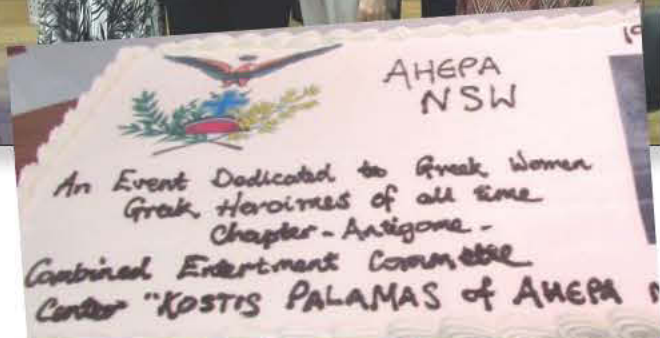 AHEPA
NSW
An Event Dedicated to Greek Women
Greek Heroines of all time
Chapter - Antigone -
Combined Entertment Committee
Center "KOSTIS PALAMAS of AHEPA N